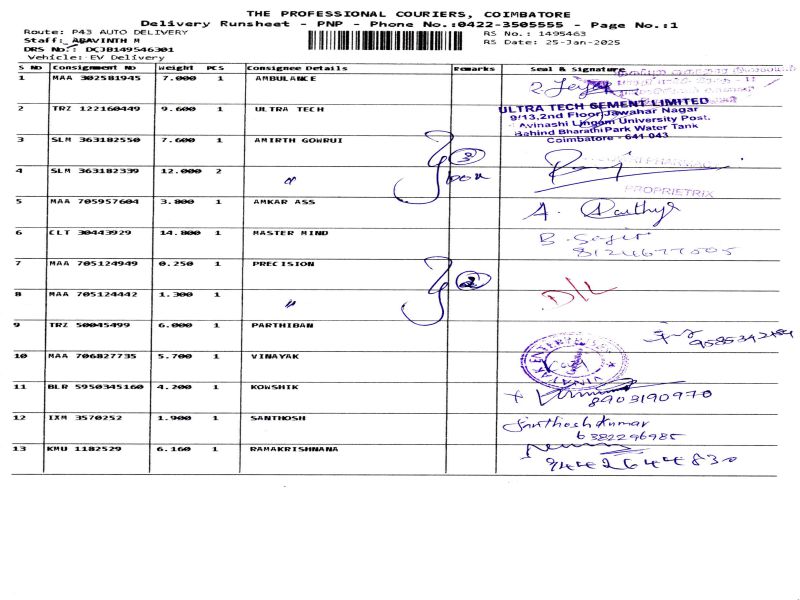 THE PROFESSIONAL COURIERS, COIMBATORE
Delivery Runsheet - PNP - Phone No.:0422-3505555 - Page No.:1
Route: P43 AUTO DELIVERY RS No.: 1495463
Staff: ARAVINTH M RS Date: 25-Jan-2025
DRS No.: DCJB149546301
Vehicle: EV Delivery
S No Consignment No Weight PCS Consignee Details Remarks Seal & Signature
1 MAA 302581945 7.000 1 AMBULANCE
2 TRZ 122160449 9.600 1 ULTRA TECH
ULTRA TECH CEMENT LIMITED
9/13,2nd Floor,Jawahar Nagar
Avinashi Lingom University Post.
Behind Bharathi Park Water Tank
Coimbatore - 641 043
3 SLM 363182550 7.600 1 AMIRTH GOWRUI 3
4 SLM 363182339 12.000 2 "
PROPRIETRIX
5 MAA 705957604 3.800 1 AMKAR ASS A.
6 CLT 30443929 14.800 1 MASTER MIND B.
7 MAA 705124949 0.250 1 PRECISION 2
8 MAA 705124442 1.300 1 " D/L
9 TRZ 50045499 6.000 1 PARTHIBAN
10 MAA 706827735 5.700 1 VINAYAK
VINAYAK ENTERPRISES
11 BLR 5950345160 4.200 1 KOWSHIK
8903190970
12 IXM 3570252 1.900 1 SANTHOSH Santhoshkumar
6382296985
13 KMU 1182529 6.160 1 RAMAKRISHNANA
9442644830